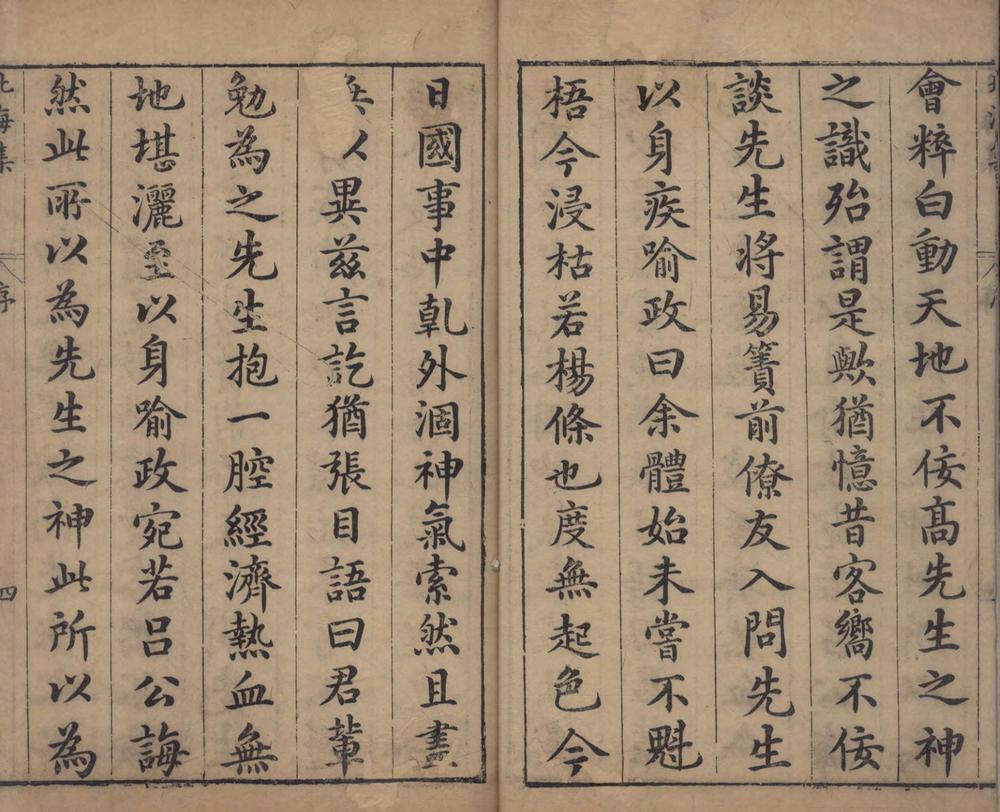 會粹白動天地不佞髙先生之神
之識殆謂是歟猶憶昔客嚮不佞
談先生將易簀前僚友入問先生
以身疾喻政曰余體始未嘗不魁
梧今浸枯若楊條也度無起色今
日國事中乹外涸神氣索然且晝
人異兹言訖猶張目語曰君輩
勉為之先生抱一腔經濟熱血無
地堪灑至以身喻政宛若呂公誨
然此所以為先生之神此所以為
北海集
序
四